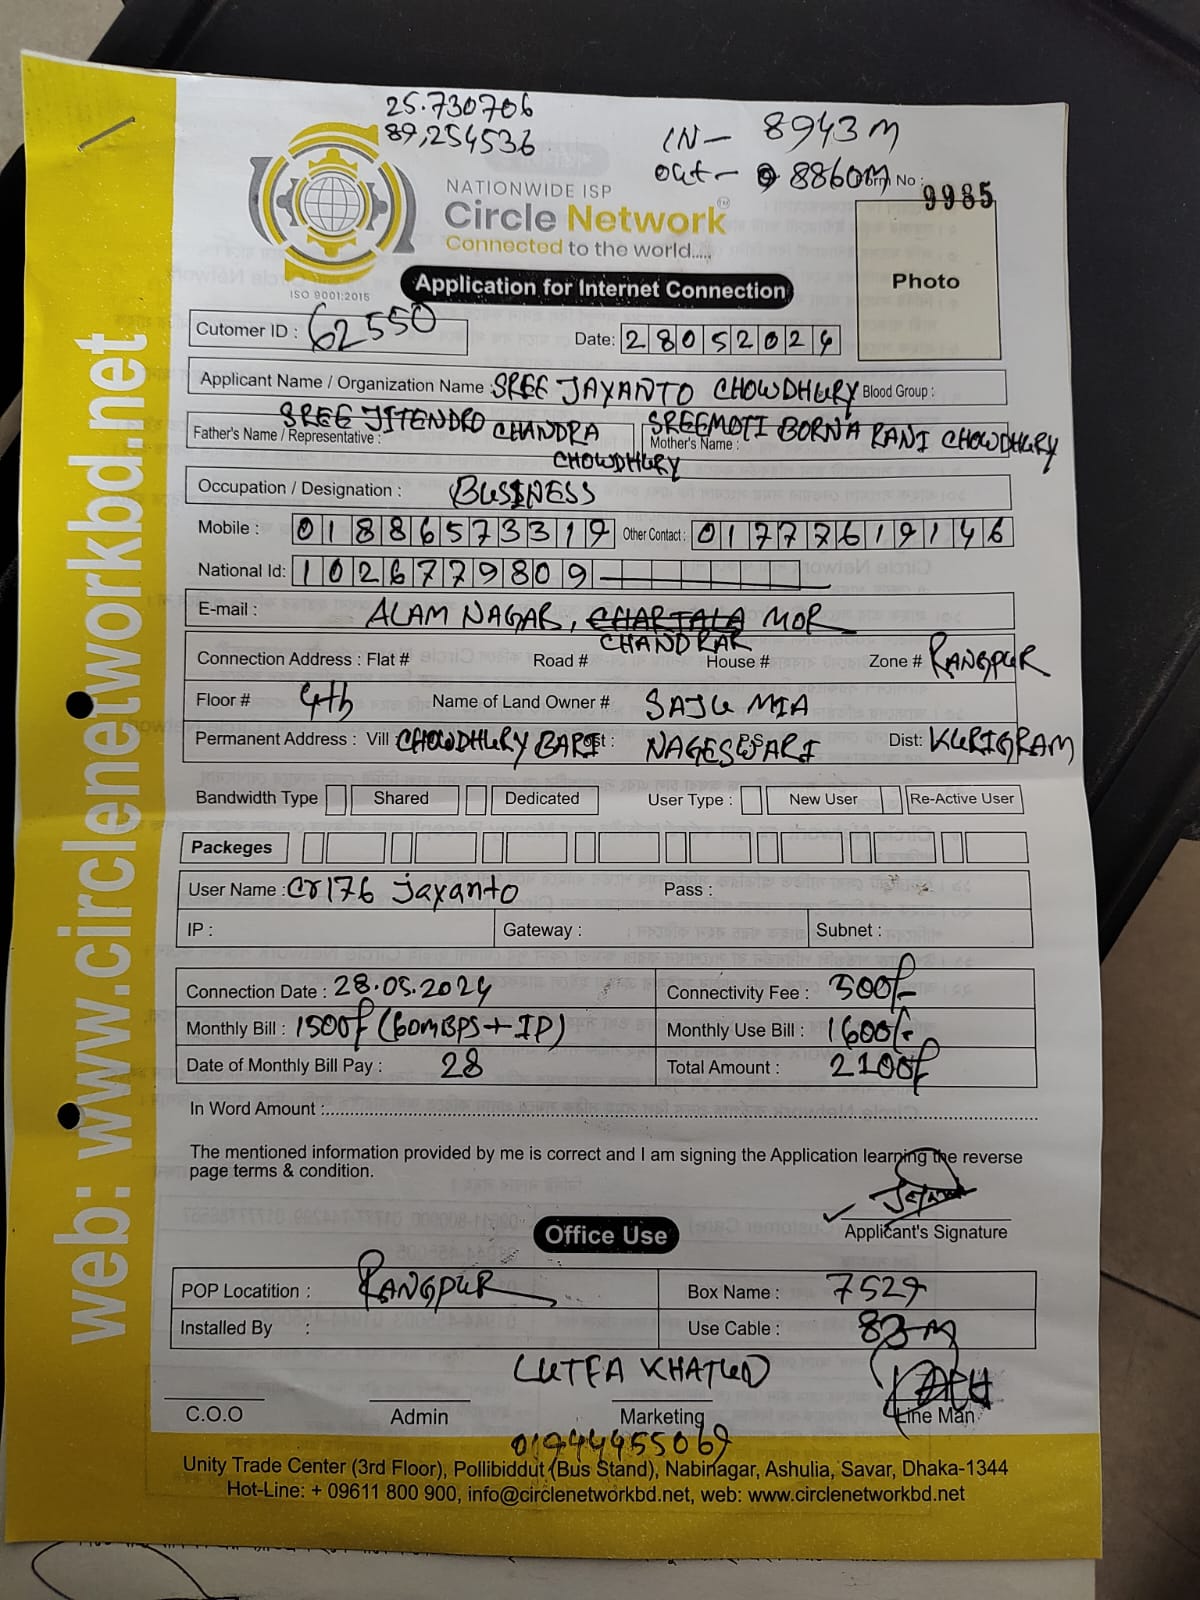 25.730706
89,254536
IN- 8943M
out- 8860M
Form No :
9985
NATIONWIDE ISP
Circle Network
Connected to the world.....
ISO 9001:2015
Photo
Application for Internet Connection
Cutomer ID : 62550
Date: 28052024
Applicant Name / Organization Name : SREE JAYANTO CHOWDHURY Blood Group :
Father's Name / Representative : SREE JITENDRO CHANDRA CHOWDHURY
Mother's Name : SREEMOTI BORNA RANI CHOWDHURY
Occupation / Designation : BUSINESS
Mobile : 01886573319 Other Contact : 01777619146
National Id: 1026779809
E-mail : ALAM NAGAR, CHARTALA MOR
CHANDRAR
Connection Address : Flat # Road # House # Zone # RANGPUR
Floor # 4th Name of Land Owner # SAJU MIA
Permanent Address : Vill CHOWDHURY BARI Post : NAGESWARI P.S Dist: KURIGRAM
Bandwidth Type Shared Dedicated User Type : New User Re-Active User
Packeges
User Name : cr176 jayanto Pass :
IP : Gateway : Subnet :
Connection Date : 28.05.2024 Connectivity Fee : 500/-
Monthly Bill : 1500/- (60MBPS+IP) Monthly Use Bill : 1600/-
Date of Monthly Bill Pay : 28 Total Amount : 2100/-
In Word Amount :
The mentioned information provided by me is correct and I am signing the Application learning the reverse
page terms & condition.
Applicant's Signature
Office Use
POP Locatition : RANGPUR Box Name : 7529
Installed By : Use Cable : 83M
LUTFA KHATUN
C.O.O Admin Marketing Line Man
01944455069
Unity Trade Center (3rd Floor), Pollibiddut (Bus Stand), Nabinagar, Ashulia, Savar, Dhaka-1344
Hot-Line: + 09611 800 900, info@circlenetworkbd.net, web: www.circlenetworkbd.net
web: www.circlenetworkbd.net